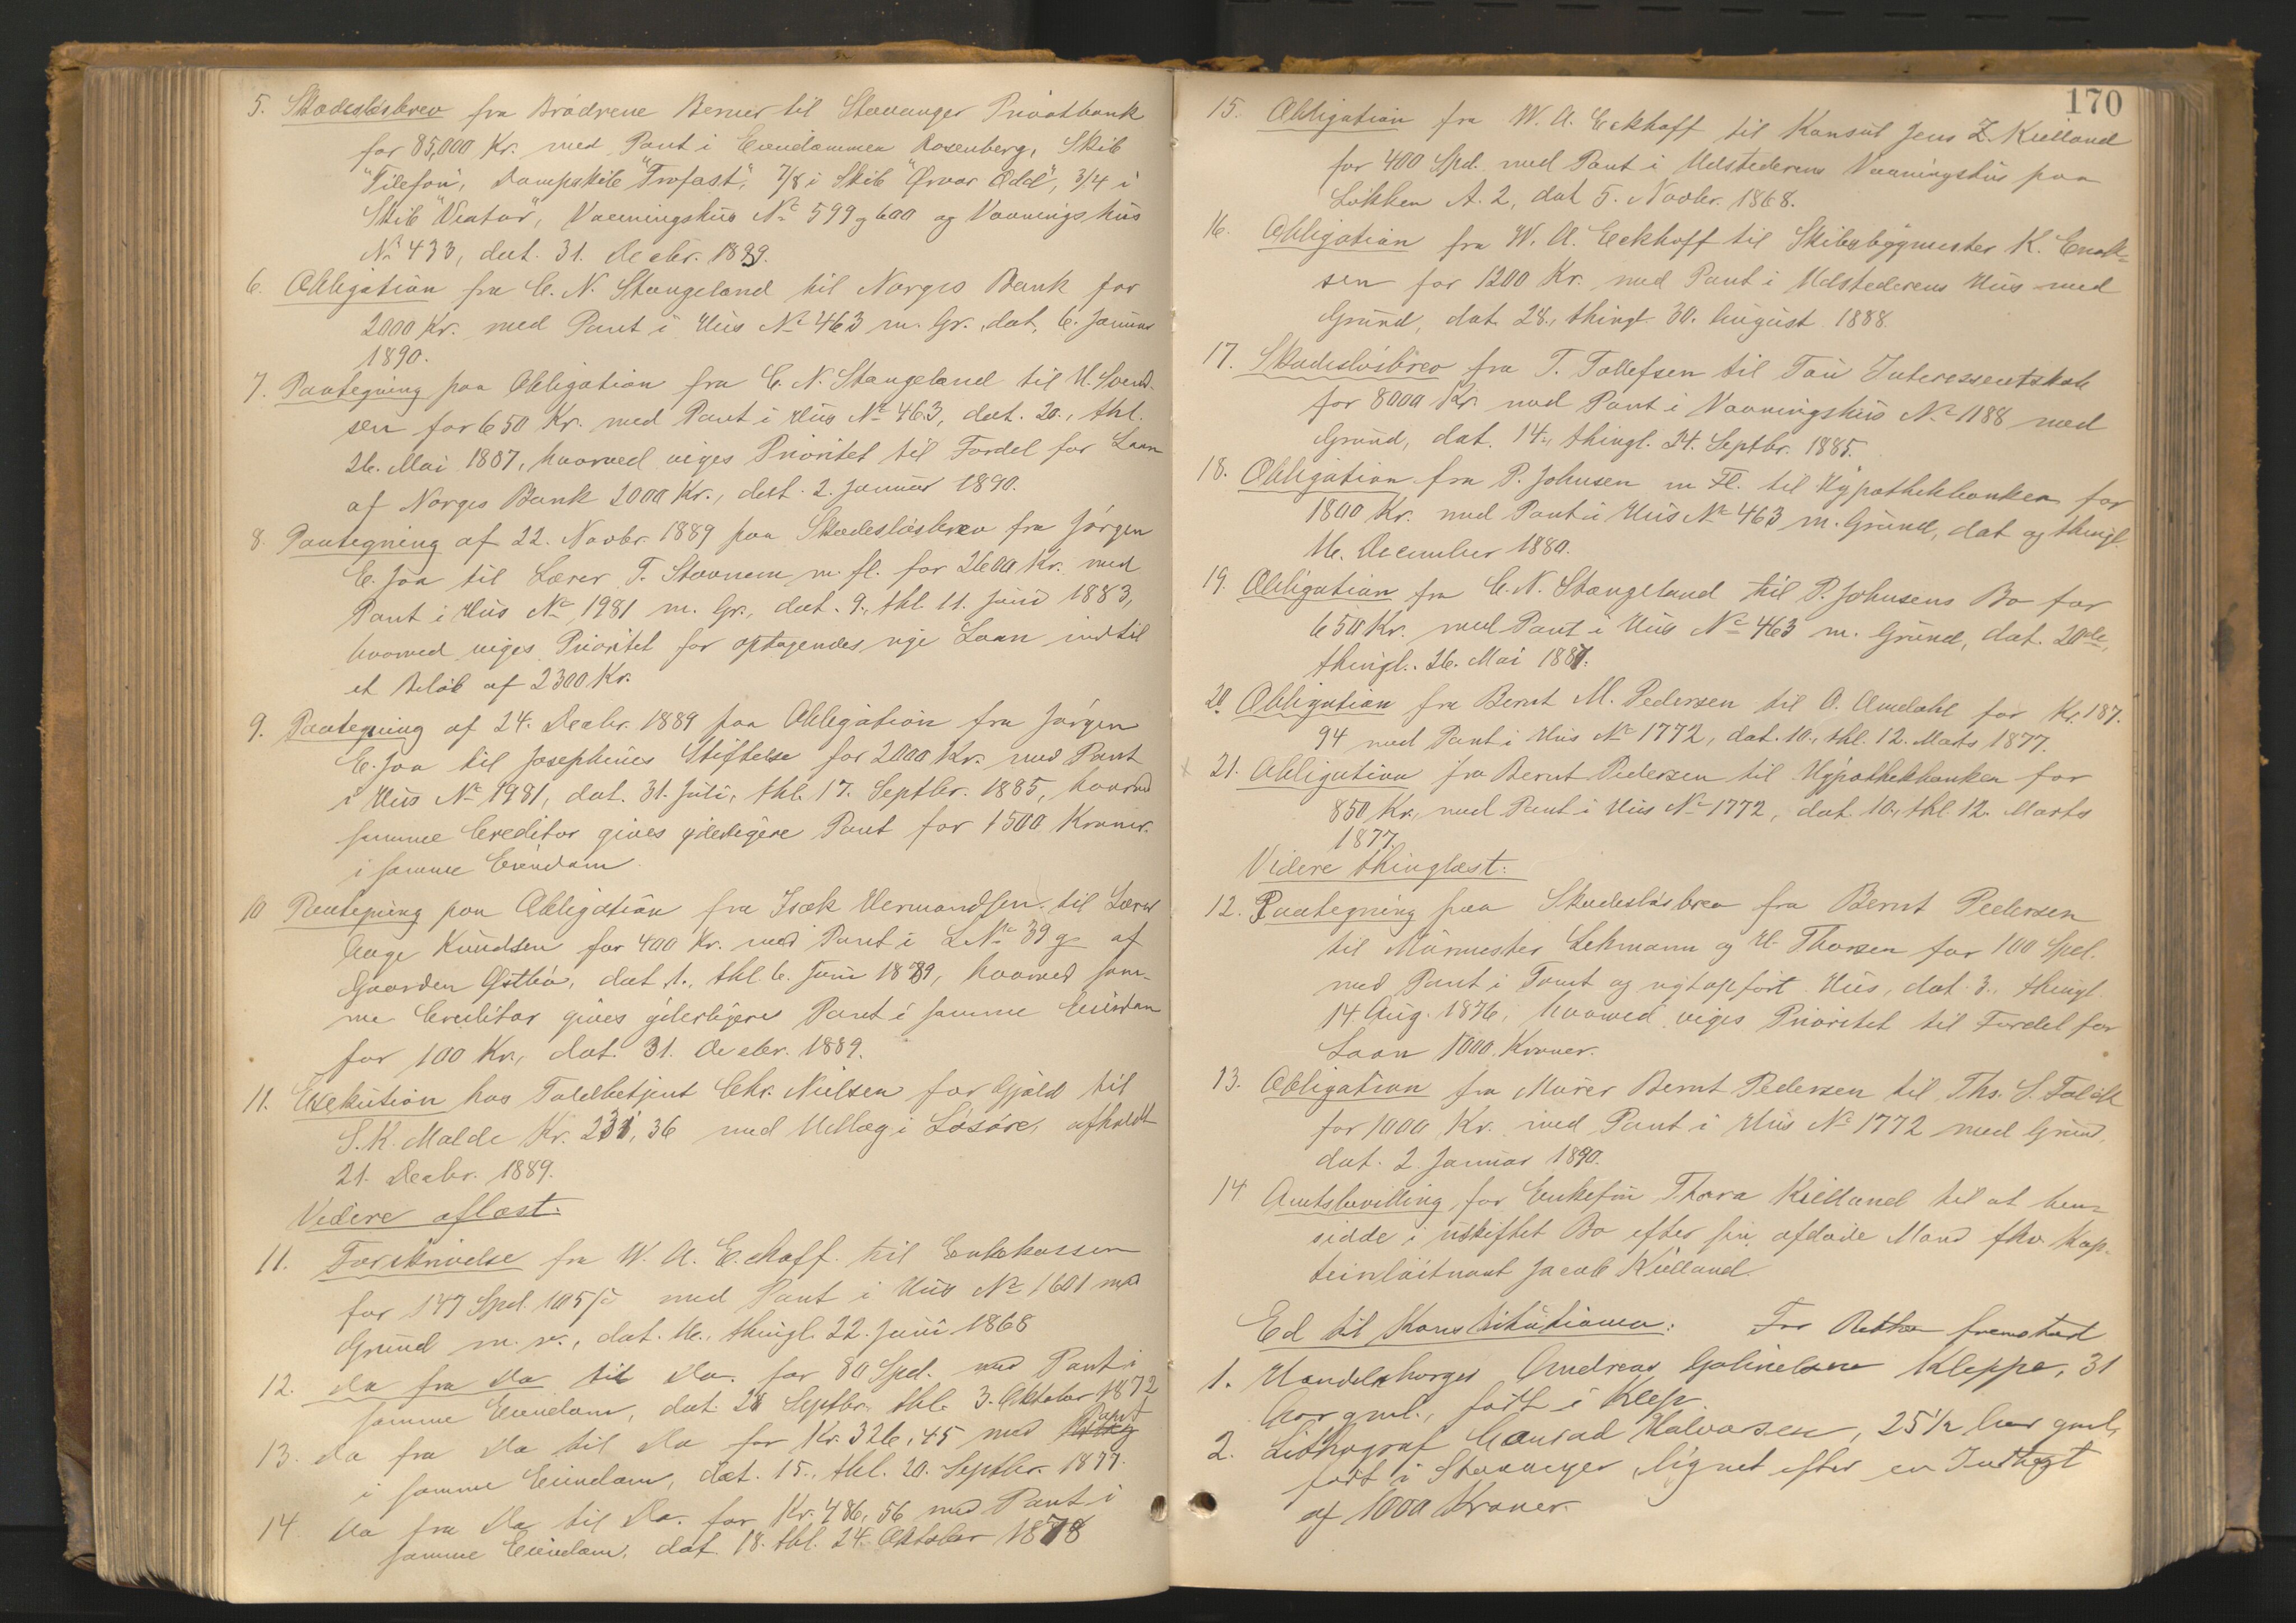 5. Skadesløsbrev fra Brødrene Berner til Stavanger Privatbank
for 85,000 Kr. med Pant i Eiendommen Rosenberg, Skib
"Tilefon", Dampskib "Trofast", 7/8 i Skib "Ørvar Odd", 3/4 i
Skib "Viator", Vaaningshus No 599 g 600 og Vaaningshus
No 433, dat. 31. Decbr. 1889.
6. Obligation fra C. N. Stangeland til Norges Bank for
2000 Kr. med Pant i Hus No 463 m. Gr., dat. 6. Januar
1890.
7. Paategning paa Obligation fra C. N. Stangeland til H. Svend-
sen for 650 Kr. med Pant i Hus No 463, dat. 20., thl.
26. Mai 1887, hvorved viges Prioritet til Fordel for Laan
af Norges Bank 2000 Kr., dat. 2. Januar 1890.
8. Paategning af 22. Novbr. 1889 paa Skadesløsbrev fra Jørgen
E. Joa til Lærer T. Stavnem m. fl. for 2600 Kr. med
Pant i Hus No 1981 m. Gr., dat. 9., thl. 11. Juni 1883,
hvorved viges Prioritet for optagendes nye Laan indtil
et Beløb af 2300 Kr.
9. Paategning af 24. Decbr. 1889 paa Obligation fra Jørgen
E. Joa til Josephines Stiftelse for 2000 Kr. med Pant
i Hus No 1981, dat. 31. Juli, thl. 17. Septbr. 1885, hvorved
samme Creditor gives yderligere Pant for 1500 Kroner.
i samme Eiendom.
10 Paategning paa Obligation fra Isak Hermandsen til Lærer
Aage Knudsen for 400 Kr. med Pant i L No 39 g af
Gaarden Østbø, dat. 1., thl. 6. Juni 1889, hvorved sam-
me Creditor gives yderligere Pant i samme Eiendom
for 100 Kr., dat. 31. Decbr. 1889.
11. Exekution hos Toldbetjent Chr. Nielsen for Gjæld til
S. K. Malde Kr. 231,36 med Udlæg i Løsøre, afholdt
21. Decbr. 1889.
Videre aflæst.
11. Forskrivelse fra W. A. Eckhoff til Enkekassen
for 147 Spd. 105 ß med Pant i Hus No 1601 med
Grund m. v., dat. 16., thingl. 22. Juni 1868
12. Do fra Do til Do. for 80 Spd. med Pant i
samme Eiendom, dat. 28 Septbr. thl. 3. Oktober 1872
13. Do fra Do til Do for Kr. 326,45 med Pant
i samme Eiendom, dat. 15., thl. 20. Septbr. 1877.
14. Do fra Do til Do. for Kr. 486,56 med Pant i
samme Eiendom, dat. 18. thl. 24. Oktober 1878
170
15. Obligation fra W. A. Eckhoff til Konsul Jens Z. Kielland
for 400 Spd. med Pant i Udstederens Vaaningshus paa
Løkken A. 2, dat. 5. Novbr. 1868.
16. Obligation fra W. A. Eckhoff til Skibsbygmester K. Enok-
sen for 1200 Kr. med Pant i Udstederens Hus med
Grund, dat. 28., thingl. 30. August 1888.
17. Skadesløsbrev fra T. Tollefsen til Tau Interessentskab
for 8000 Kr. med Pant i Vaaningshus No 1188 med
Grund, dat. 14., thingl. 24. Septbr. 1885.
18. Obligation fra P. Johnsen m Fl. til Hypothekbanken for
1800 Kr. med Pant i Hus No 463 m. Grund, dat og thingl.
16. December 1880.
19. Obligation fra C. N. Stangeland til P. Johnsens Bo for
650 Kr. med Pant i Hus No 463 m. Grund, dat. 20de,
thingl. 26. Mai 1887.
20. Obligation fra Bernt M. Pedersen til O. Omdahl for Kr. 187.
94 med Pant i Hus No 1772, dat. 10., thl. 12. Marts 1877.
x 21. Obligation fra Bernt Pedersen til Hypothekbanken for
850 Kr., med Pant i Hus No 1772, dat. 10., thl. 12. Marts
1877.
Videre thinglæst:
12. Paategning paa Skadesløsbrev fra Bernt Pedersen
til Murmester Lehmann og H. Thorsen for 100 Spd.
med Pant i Tomt og nytopført Hus, dat. 3., thingl.
14 Aug. 1876, hvorved viges Prioritet til Fordel for
Laan 1000 Kroner.
13. Obligation fra Murer Bernt Pedersen til Ths. S. Falck
for 1000 Kr. med Pant i Hus No 1772 med Grund,
dat. 2 Januar 1890.
14. Amtsbevilling for Enkefru Thora Kielland til at hen-
sidde i uskiftet Bo efter sin afdøde Mand fhv. Kap-
teinløitnant Jacob Kielland.
Ed til Konstitutionen: For Retten fremstod
1. Handelsborger Andreas Gabrielsen Kleppe, 31
Aar gml., født i Klep.
2. Lithograf Conrad Halvorsen, 25 1/2 Aar gml.,
født i Stavanger, lignet efter en Indtægt
af 1000 Kroner.